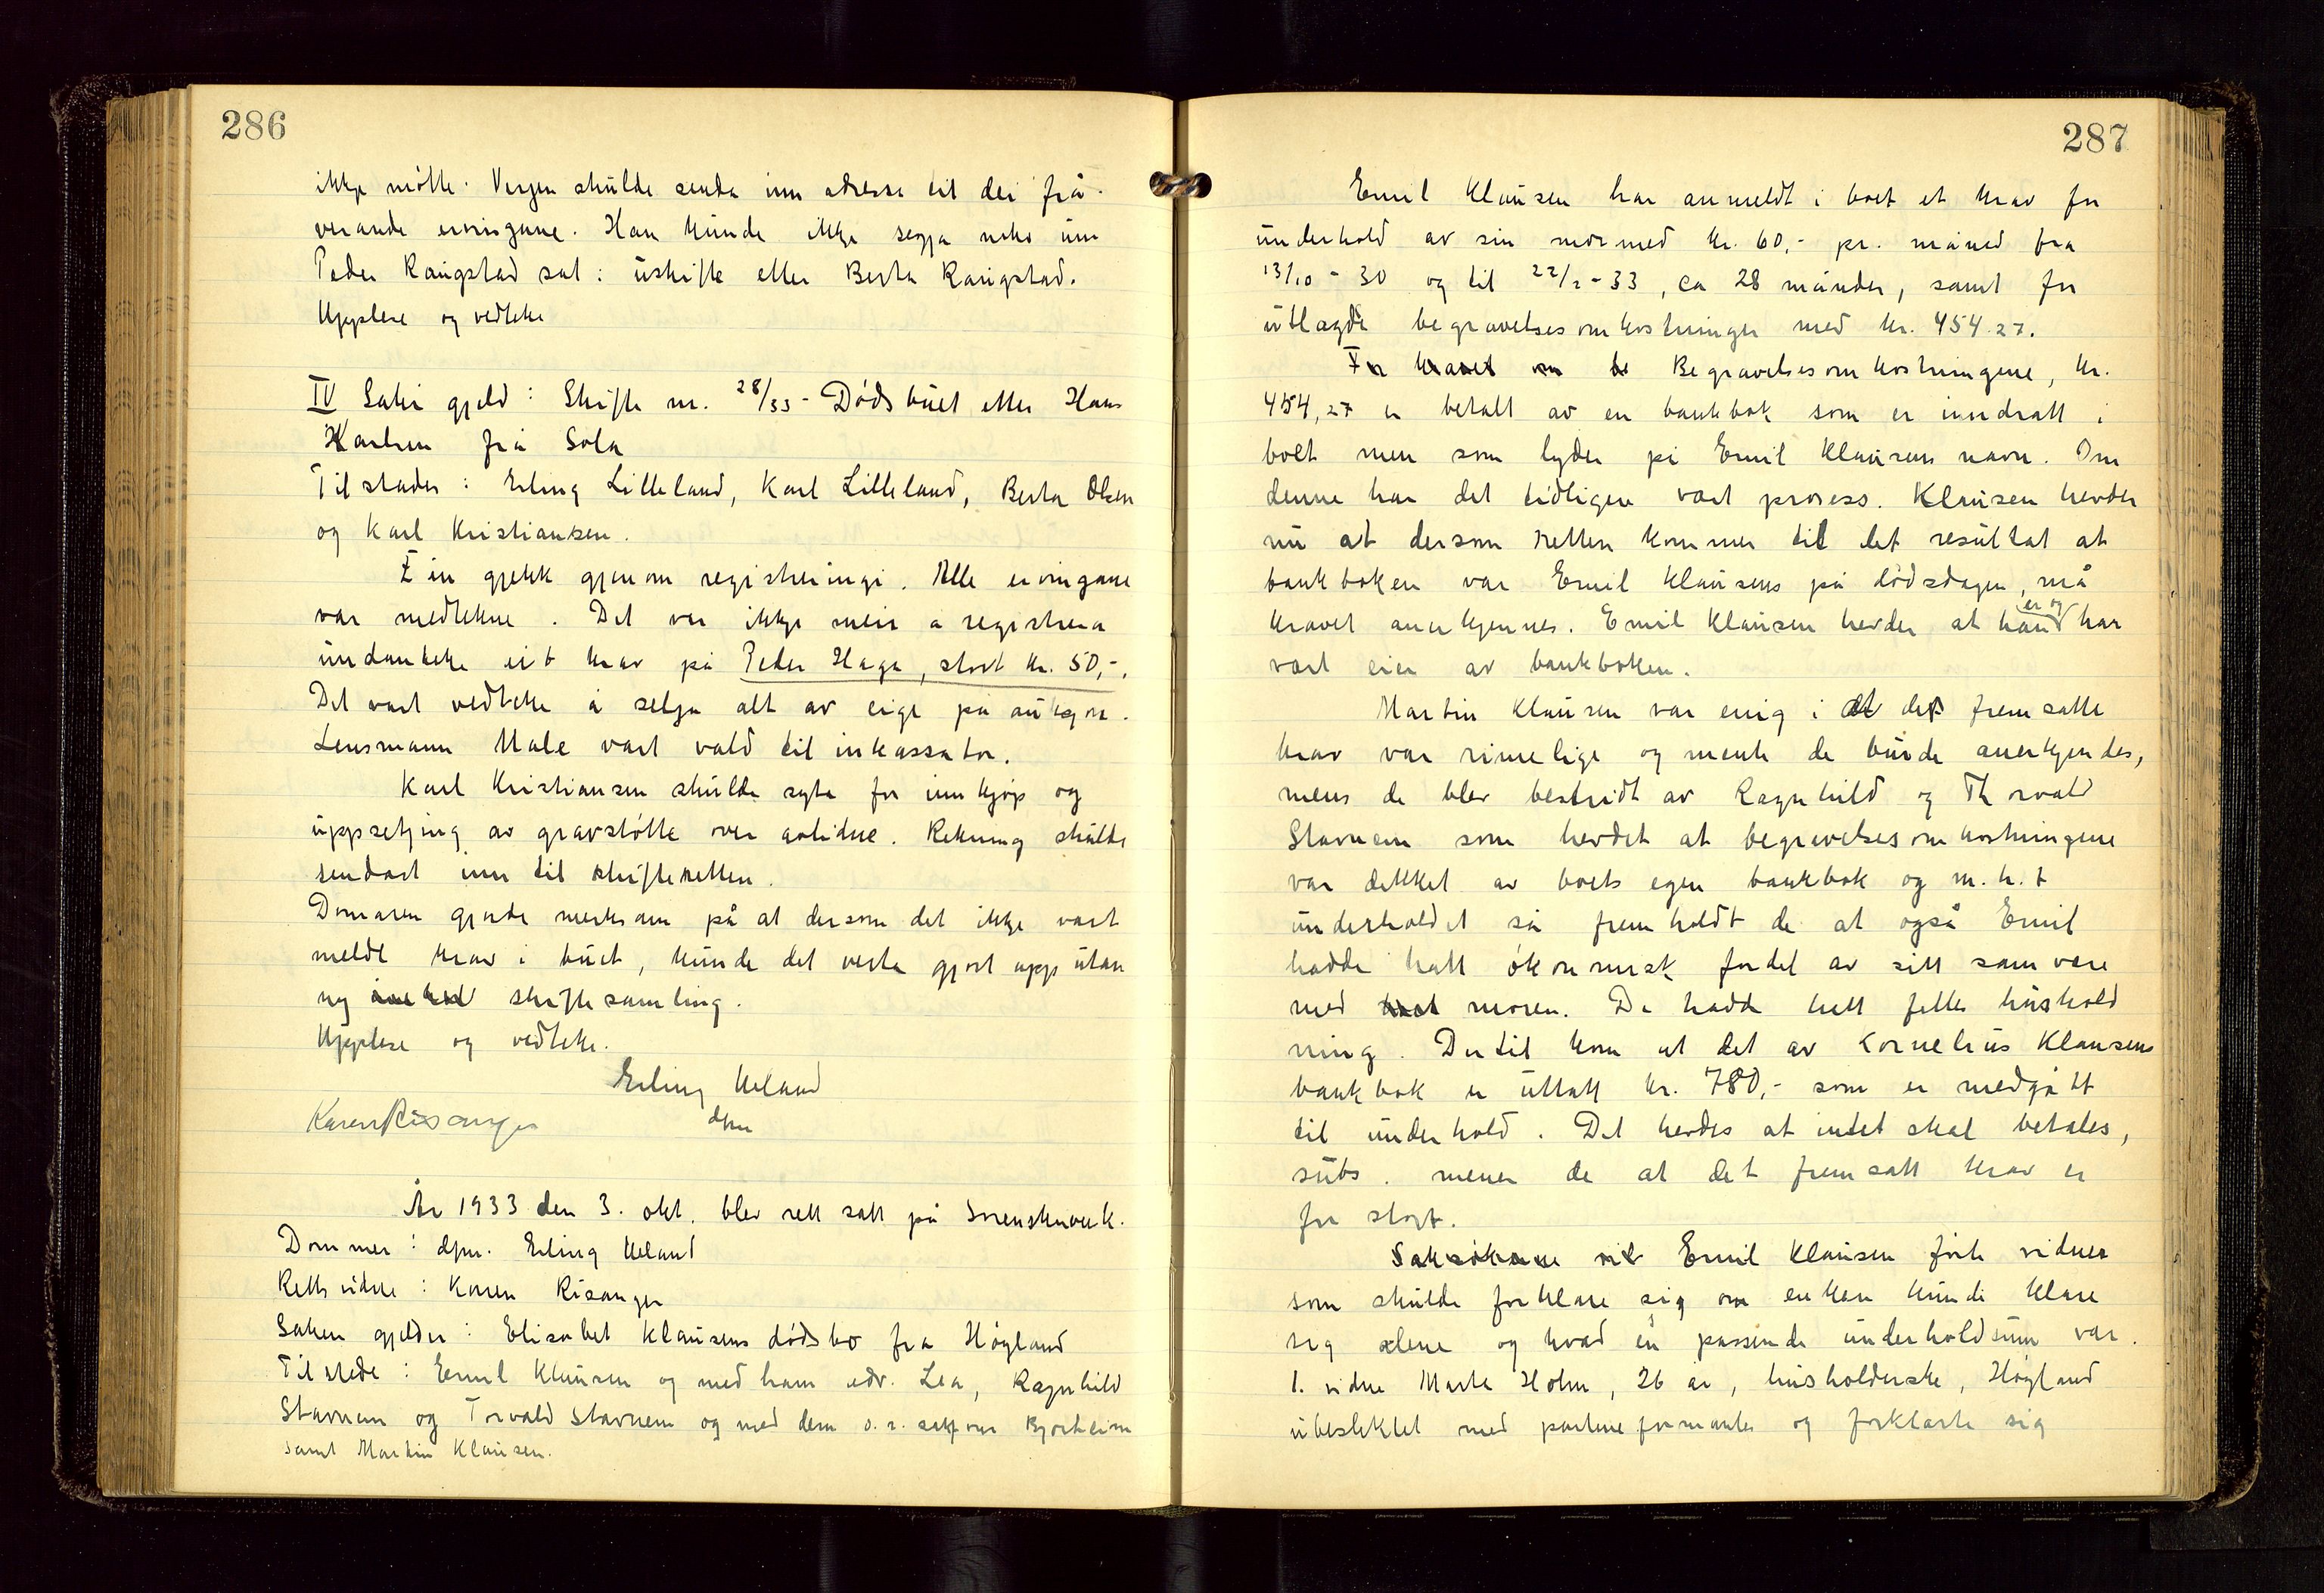 286
ikkje møtte. Verjen skulde senda inn adresse til dei frå-
verande ervingane. Han kunde ikkje segja noko um
Peder Raugstad sat i uskifte etter Berta Raugstad.
Upplese og vedteke
IV Saki gjeld: Skifte nr. 28/33 - Dødsbuet etter Hans
Karlsen frå Sola
Tilstades: Erling Lilleland, Karl Lilleland, Berta Olsen
og Karl Kristiansen.
Ein gjekk gjenom registreringi. Alle ervingane
var medtekne. Det var ikkje meir å registrera
undanteke eit krav på Peder Haga, stort kr. 50,-.
Det vart vedteke å selja alt av eige på auksjon.
Lensmann Hale vart vald til inkassator.
Karl Kristiansen skulde syta for innkjøp og
uppsetjing av gravstøtte over avlidne. Rekning skulde
sendast inn til skifteretten.
Domaren gjorde merksam på at dersom det ikkje vart
meldt krav i buet, kunde det verta gjort upp utan
ny skiftesamling.
Upplese og vedteke.
Erling Ueland
dfm
Karen Risanger
År 1933 den 3. okt. blev rett satt på Sorenskrivark.
Dommer: dfm. Erling Ueland
Rettsvidne: Karen Risanger
Saken gjelder: Elisabet Klausens dødsbo fra Høyland
Tilstede: Emil Klausen og med ham adv. Lea, Ragnhild
Stavnem og Torvald Stavnem og med dem o.r. sakfører Bjorheim
samt Martin Klausen.
287
Emil Klausen har anmeldt i boet et krav for
underhold av sin mor med kr. 60,- pr. måned fra
13/10 - 30 og til 22/2 - 33, ca 28 måneder, samt for
utlagde begravelsesomkostninger med kr. 454.27.
For kravet om be Begravelsesomkostningene, kr.
454,27 er betalt av en bankbok som er inndratt i
boet men som lyder på Emil Klausens navn. Om
denne har det tidligere vært prosess. Klausen hevder
nu at dersom retten kommer til det resultat at
bankboken var Emil Klausens på dødsdagen, må
kravet anerkjennes. Emil Klausen hevder at han er og har
vært eier av bankboken.
Martin Klausen var enig i at det fremsatte
krav var rimelige og mente de burde anerkjendes,
mens de blev bestridt av Ragnhild og Thorvald
Stavnem som hevdet at begravelsesomkostningene
var dekket av boets egen bankbok og m.h.t
underholdet så fremholdt de at også Emil
hadde hatt økonomisk fordel av sitt samvære
med moren. De hadde hatt felles hushold
ning. Dertil kom at det av Kornelius Klausens
bankbok er uttatt kr. 780,- som er medgått
til underhold. Det hevdes at intet skal betales,
subs. mener de at det fremsatt krav er
for stort.
Saksøkerne vil Emil Klausen førte vidner
som skulde forklare sig om enken kunde klare
sig alene og hvad en passende underholdsum var.
1. vidne Marta Holm, 26 år, husholderske, Høyland
ubeslektet med partene formantes og forklarte sig